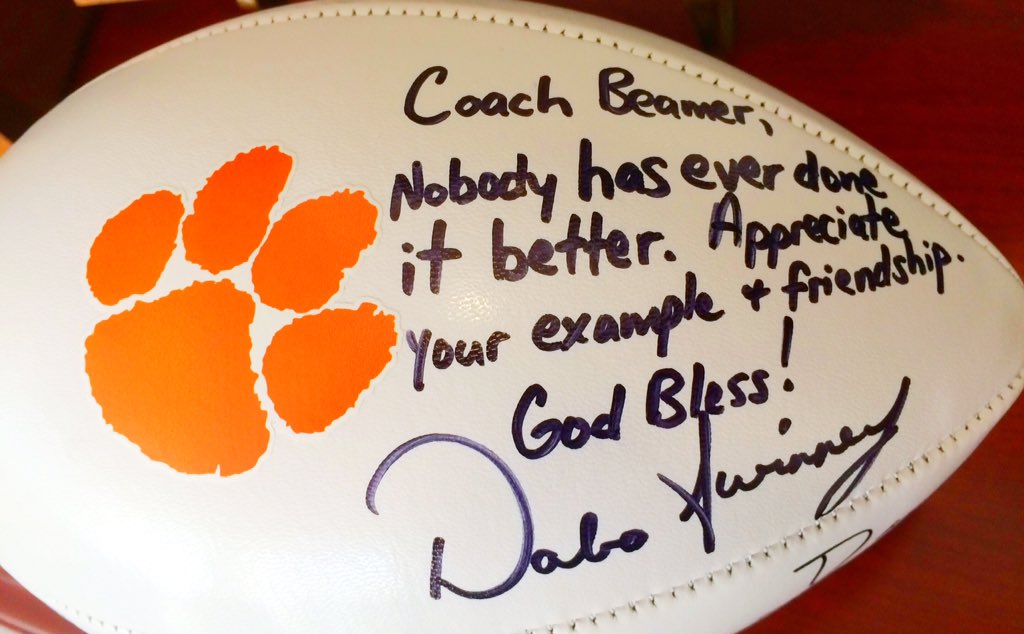 Coach Beamer,
Nobody has ever done
it better. Appreciate
your example + friendship.
God Bless!
Dabo Swinney